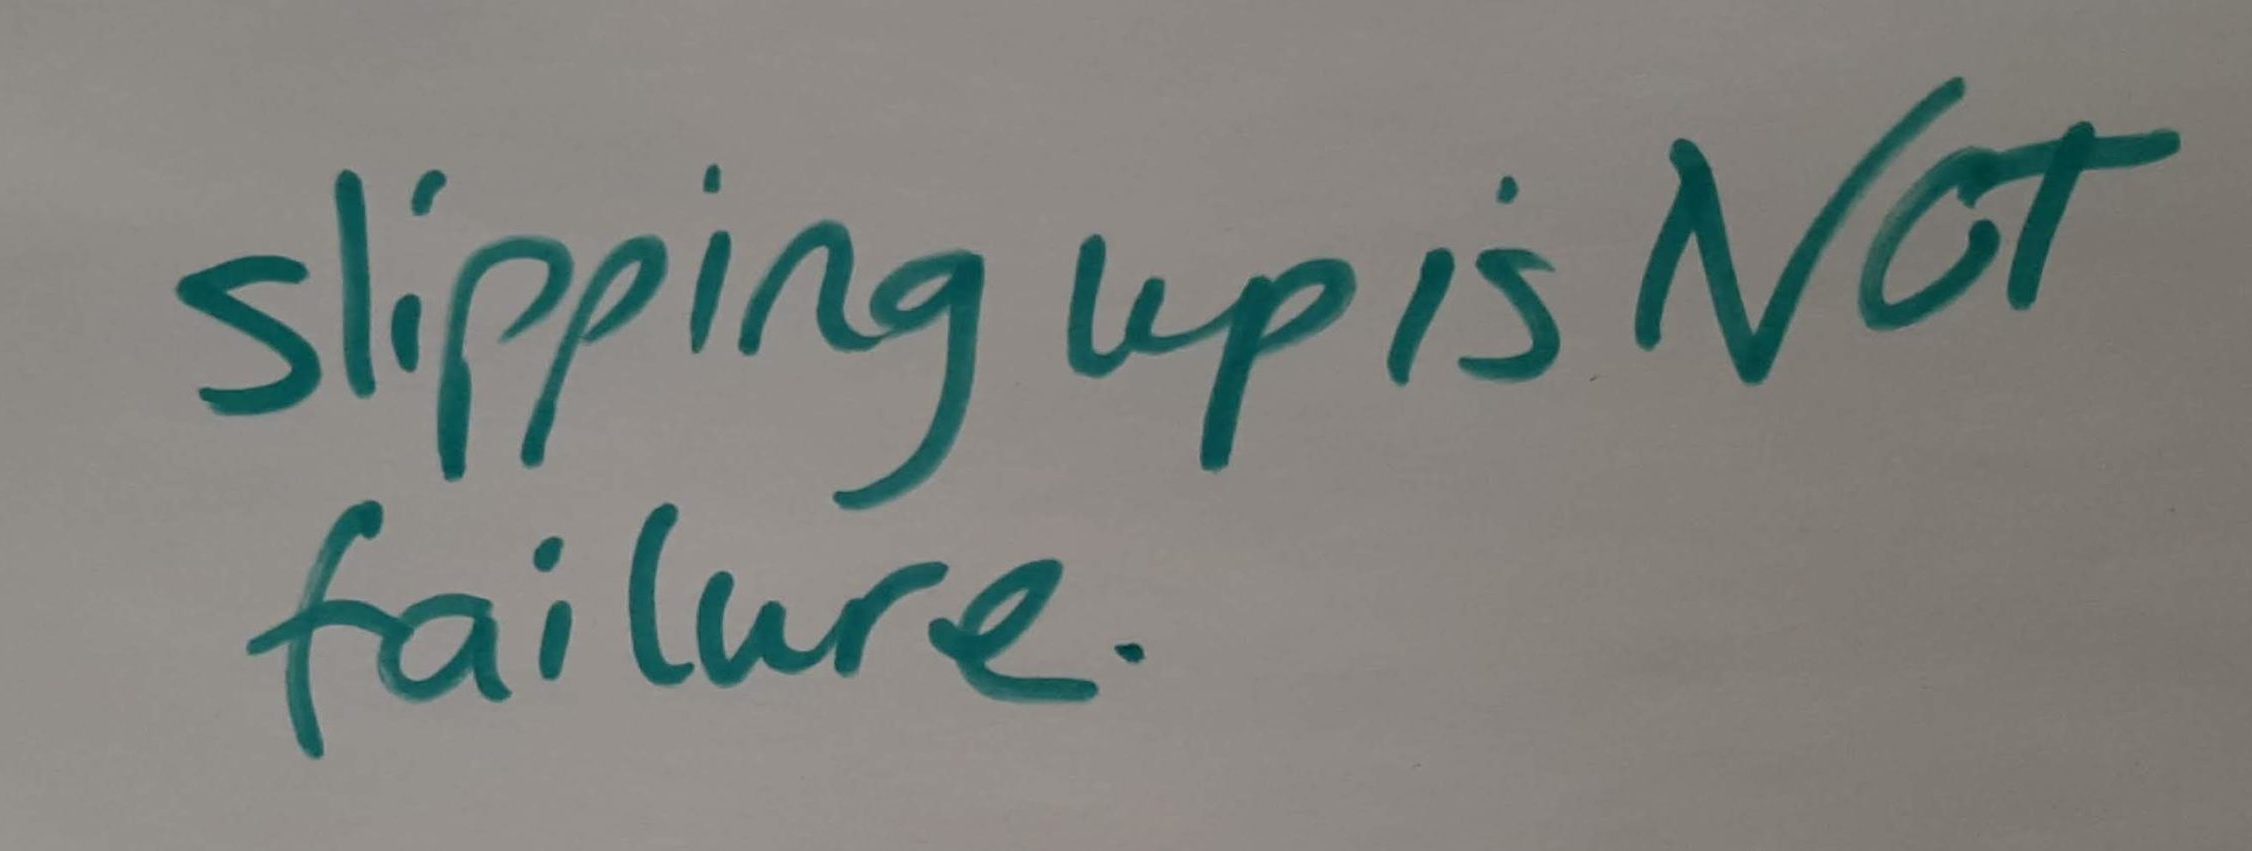 slipping up is NOT
failure.